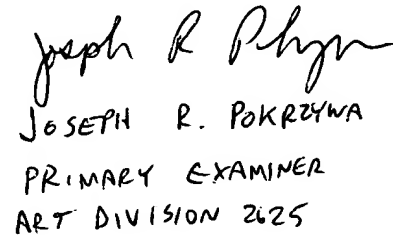 Joseph R P
JOSEPH R. POKRZYWA
PRIMARY EXAMINER
ART DIVISION 2625